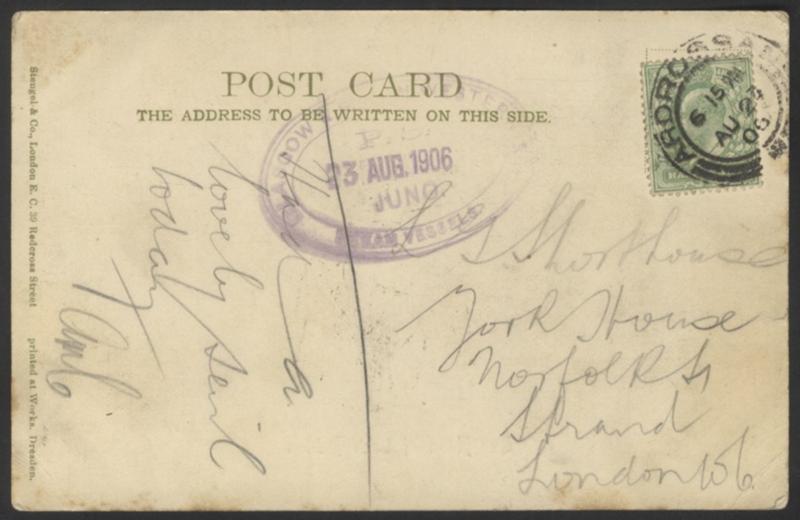 POST CARD
THE ADDRESS TO BE WRITTEN ON THIS SIDE.
Stengel & Co., London E. C. 39 Redcross Street printed at Works, Dresden.
23 AUG. 1906
JUNO
STEAM VESSELS
ARDROSSAN
6 15 PM
AU 23
06
a
lovely sail
today
Shorthouse
York House
Norfolk St
Strand
London W.C.